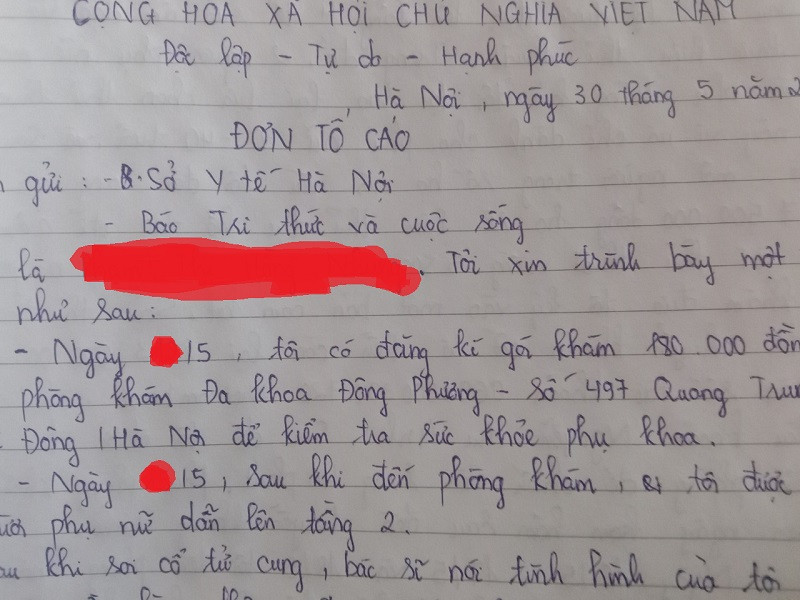 CỘNG HÒA XÃ HỘI CHỦ NGHĨA VIỆT NAM
Độc lập - Tự do - Hạnh phúc
, Hà Nội, ngày 30 tháng 5 năm 2
ĐƠN TỐ CÁO
gửi : - Sở Y tế Hà Nội
- Báo Tri thức và cuộc sống
là . Tôi xin trình bày một
như sau :
- Ngày 15, tôi có đăng kí gói khám 180.000 đồn
phòng khám Đa khoa Đông Phương - Số 497 Quang Trun
Đông / Hà Nội để kiểm tra sức khỏe phụ khoa.
- Ngày 15, sau khi đến phòng khám, tôi được
phụ nữ dẫn lên tầng 2.
au khi soi cổ tử cung, bác sĩ nói tình hình của tôi